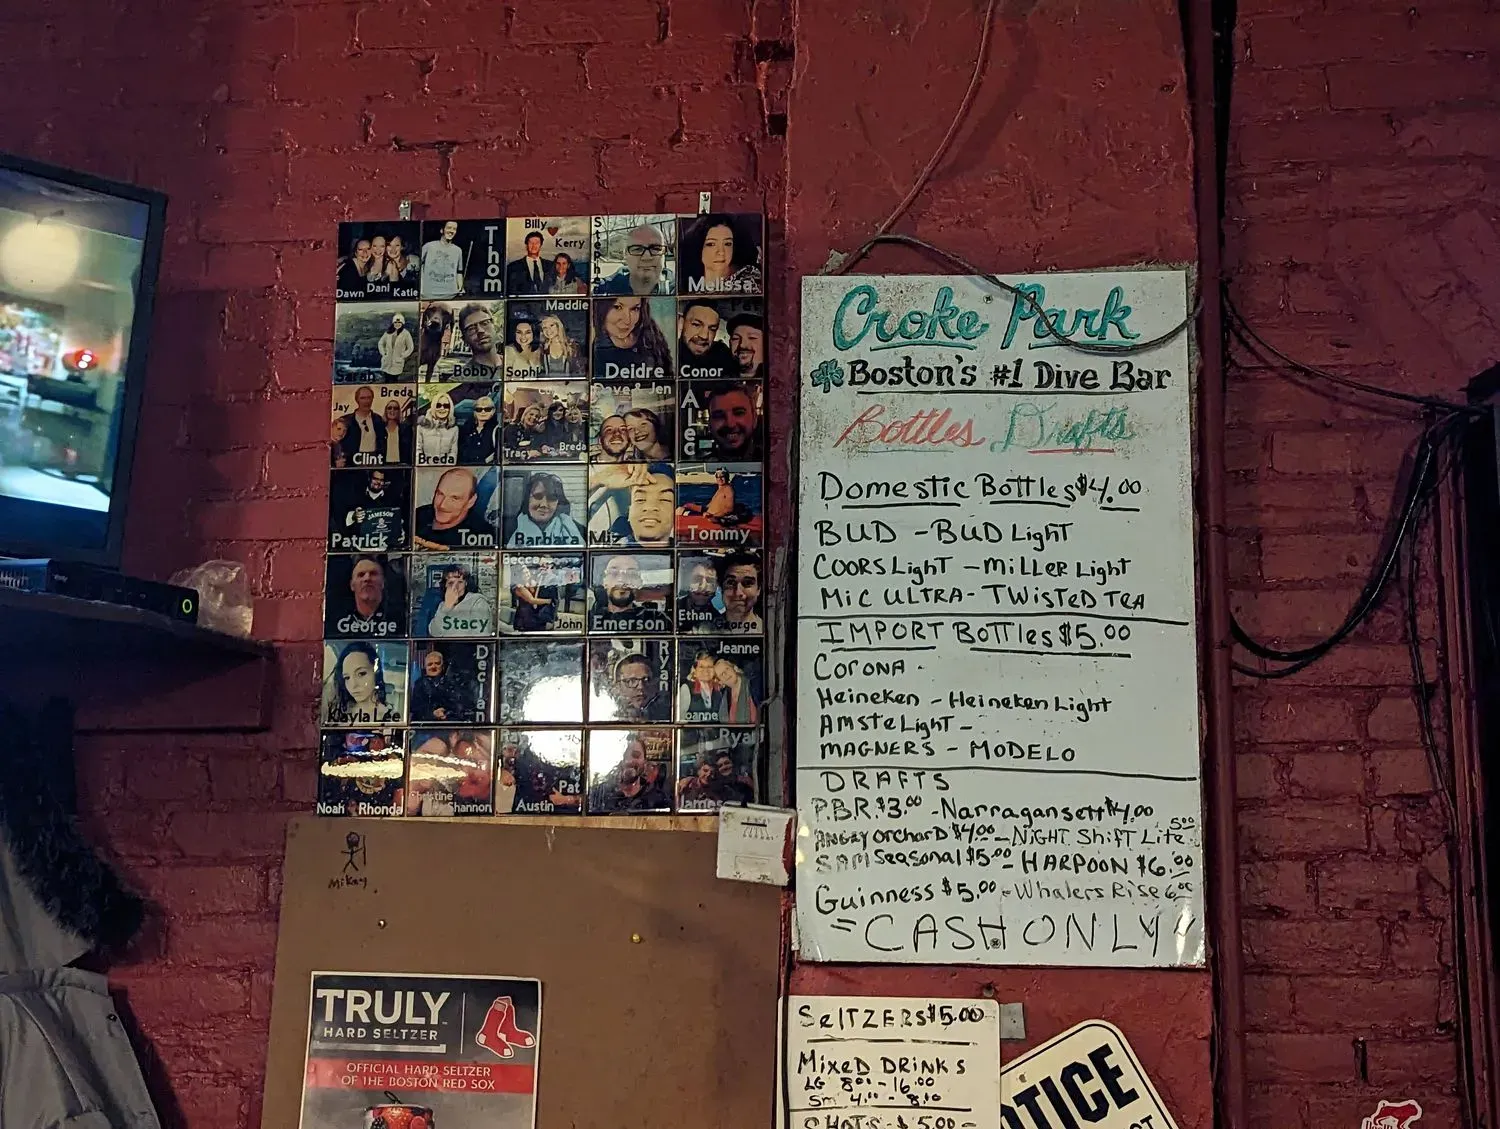 Dawn Dani Katie
Thom
Billy Kerry
Steph
Melissa
Sarah
Bobby
Maddie
Sophi
Deidre
Conor
Jay Breda
Clint
Breda
Tracy Breda
Dave & Jen
Alec
JAMESON
Patrick
Tom
Barbara
Miz
Tommy
George
Stacy
Becca
John
Emerson
Ethan
George
Kayla Lee
Declan
Ryan
Jeanne
Joanne
Noah Rhonda
Christine
Shannon
Austin
Pat
Ryan
James
Mikey
TRULY
HARD SELTZER
OFFICIAL HARD SELTZER
OF THE BOSTON RED SOX
Croke Park
BOSTON'S #1 DIVE BAR
Bottles Drafts
DOMESTIC BOTTLES $4.00
BUD - BUD LighT
COORS LighT - MiLLER Light
MiC ULTRA - TWisTED TEA
IMPORT BoTTles $5.00
CORONA -
Heineken - Heineken Light
AMSTeLighT -
MAGNERS - MODELO
DRAFTS
P.B.R. $3.00 - Narragansett $4.00
ANGRY ORCHARD $4.00 - NiGHT Shift Lite 5.00
SAM Seasonal $5.00 - HARPOON $6.00
Guinness $5.00 - Whalers Rise 6.00
"CASH ONLY"
SelTZERS $5.00
MixeD DRiNKS
LG 8.00 - 16.00
Sm 4.00 - 8.00
SHOTS - $5.00 -
OTICE